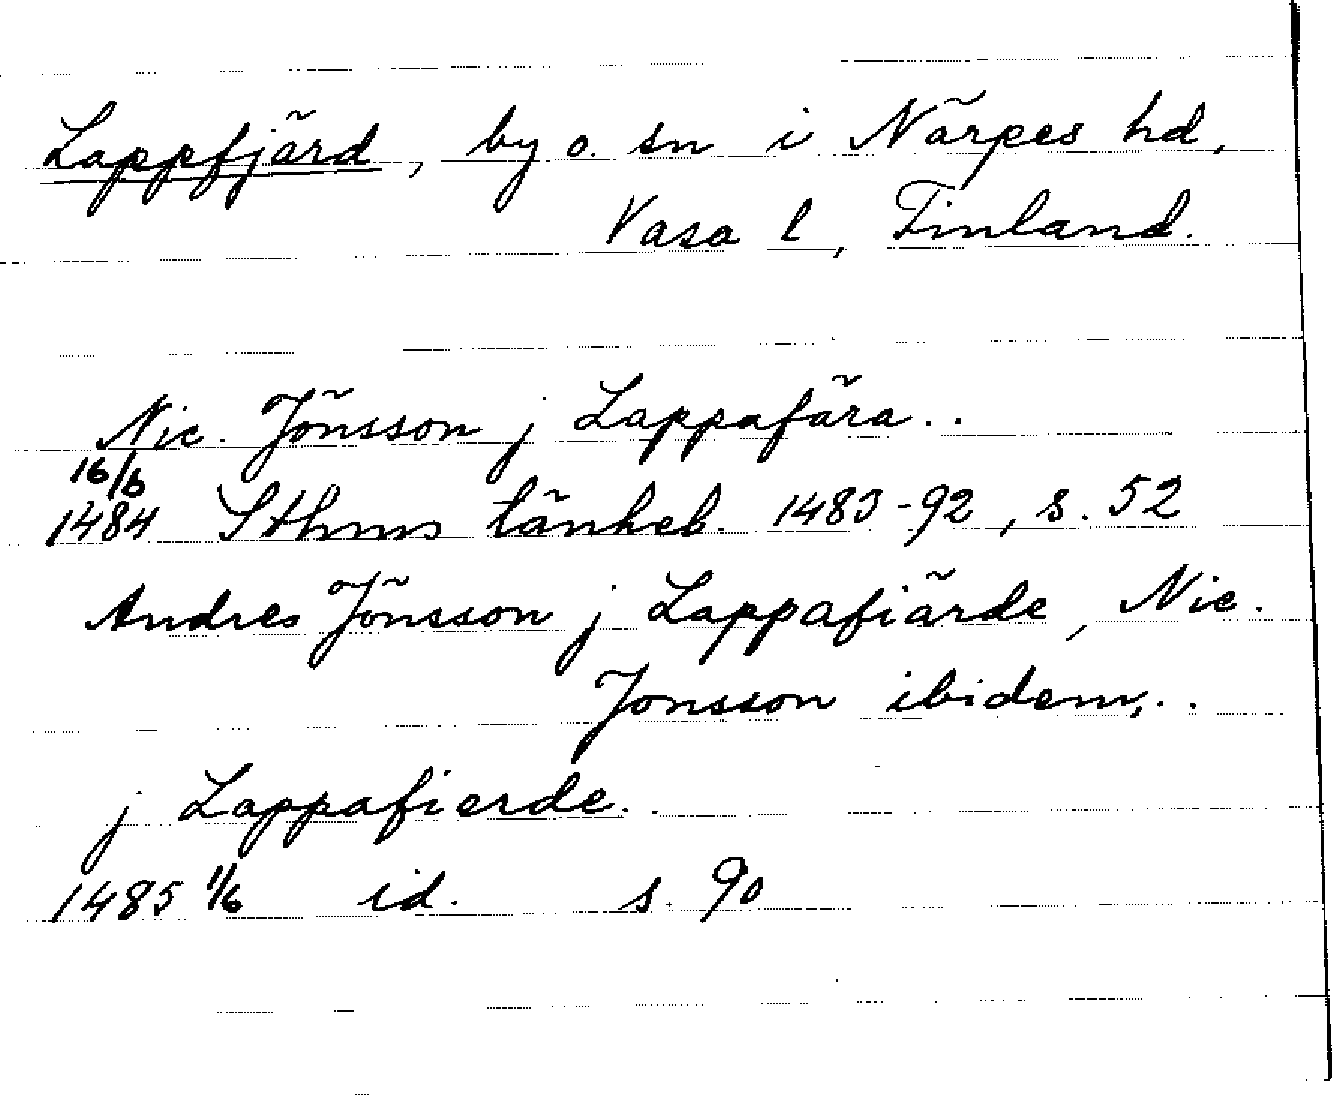 Lappfjärd, by o. sn i Närpes hd,
Vasa l, Finland.
Nic. Jönsson j Lappafära..
16/6
1484 Sthms tänkeb. 1483-92, s. 52
Andres Jönsson j Lappafiärde, Nic.
Jonsson ibidem,..
j Lappafierde.
1485 1/6 id. s. 90